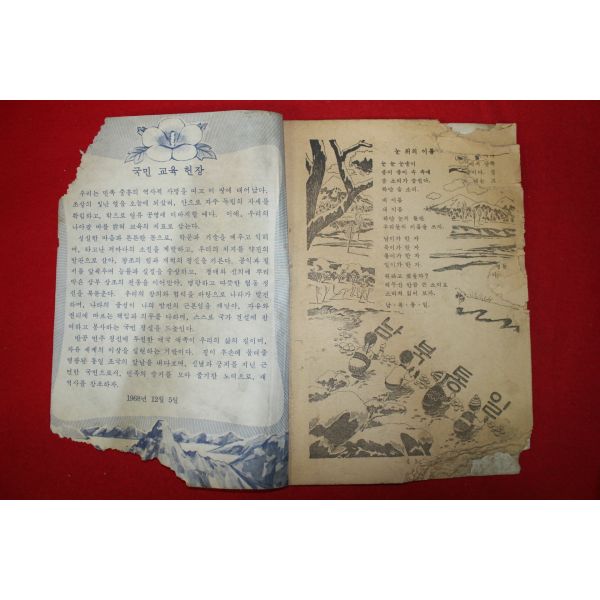 국민 교육 헌장
우리는 민족 중흥의 역사적 사명을 띠고 이 땅에 태어났다.
조상의 빛난 얼을 오늘에 되살려, 안으로 자주 독립의 자세를
확립하고, 밖으로 인류 공영에 이바지할 때다. 이에, 우리의
나아갈 바를 밝혀 교육의 지표로 삼는다.
성실한 마음과 튼튼한 몸으로, 학문과 기술을 배우고 익히
며, 타고난 저마다의 소질을 계발하고, 우리의 처지를 약진의
발판으로 삼아, 창조의 힘과 개척의 정신을 기른다. 공익과 질
서를 앞세우며 능률과 실질을 숭상하고, 경애와 신의에 뿌리
박은 상부 상조의 전통을 이어받아, 명랑하고 따뜻한 협동 정
신을 북돋운다. 우리의 창의와 협력을 바탕으로 나라가 발전
하며, 나라의 융성이 나의 발전의 근본임을 깨달아, 자유와
권리에 따르는 책임과 의무를 다하며, 스스로 국가 건설에 참
여하고 봉사하는 국민 정신을 드높인다.
반공 민주 정신에 투철한 애국 애족이 우리의 삶의 길이며,
자유 세계의 이상을 실현하는 기반이다. 길이 후손에 물려줄
영광된 통일 조국의 앞날을 내다보며, 신념과 긍지를 지닌 근
면한 국민으로서, 민족의 슬기를 모아 줄기찬 노력으로, 새
역사를 창조하자.
1968년 12월 5일
눈 위의 이름
눈 눈 눈송이
송이 송이 속에
하얀
새 이름
새 이름
하얀 눈의
우리들이 이름을 쓰자.
남이가 한 자
북이가 한 자
통이가 한 자
일이가 한 자
뭐라고 했을까?
소리쳐 읽어 보자.
남·북·통·일
남북통일